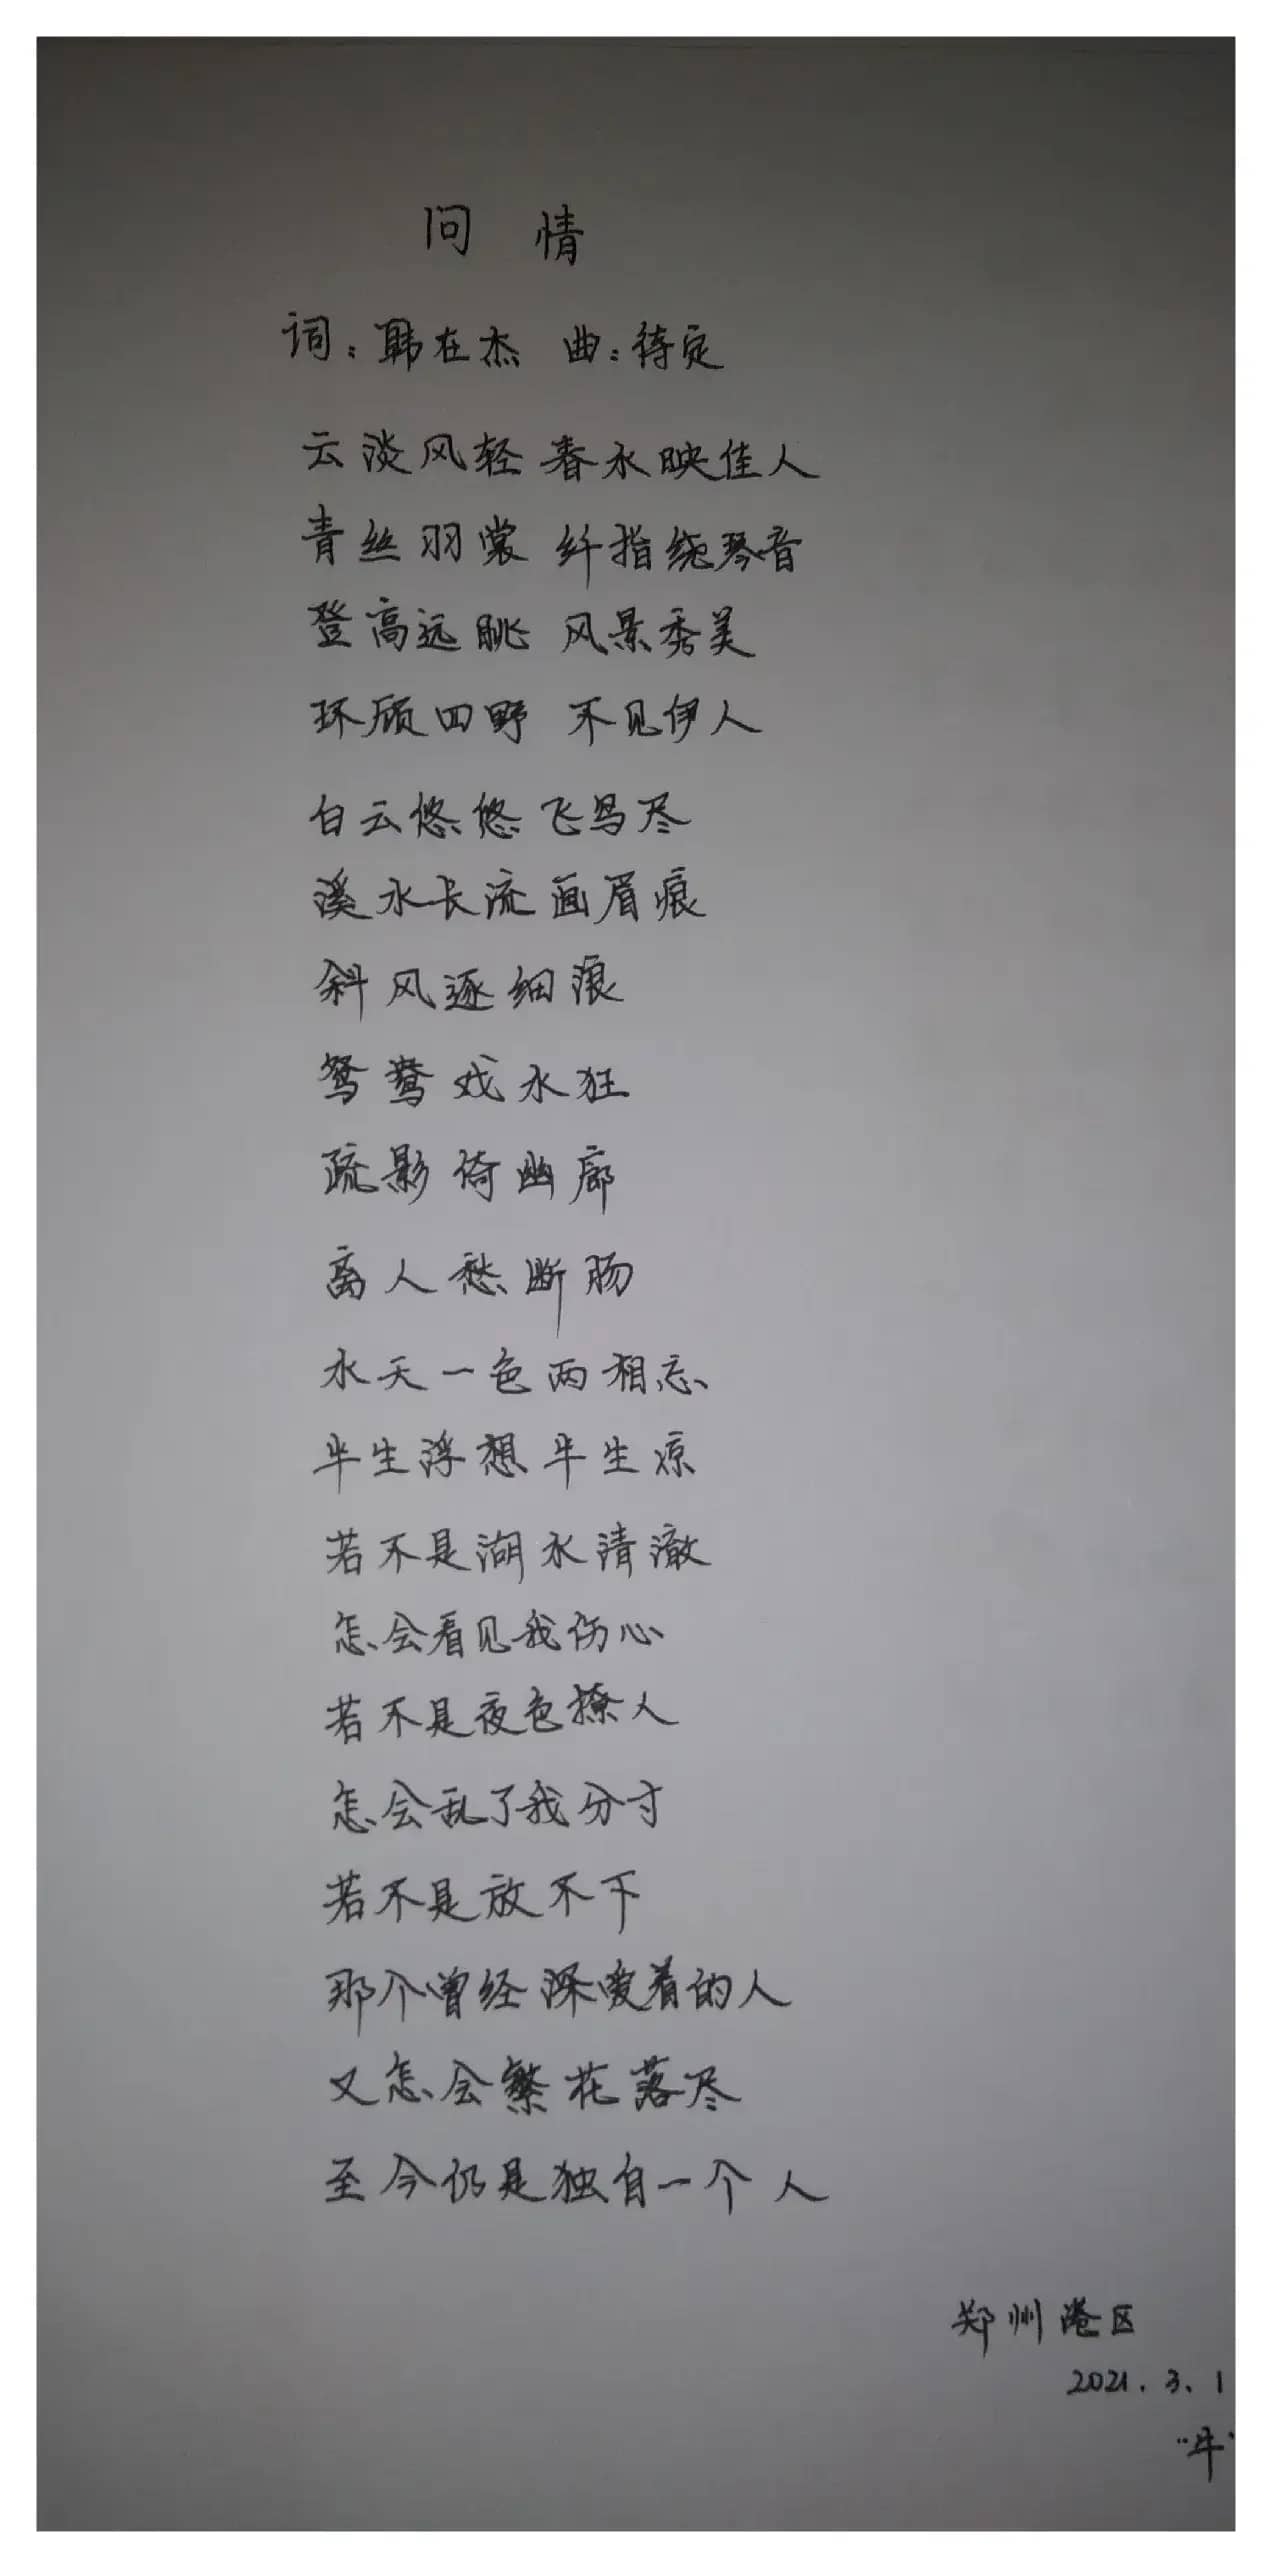 问情
词：韩在杰 曲：待定
云淡风轻 春水映佳人
青丝羽裳 纤指绕琴音
登高远眺 风景秀美
环顾四野 不见伊人
白云悠悠飞鸟尽
溪水长流画眉痕
斜风逐细浪
鸳鸯戏水狂
疏影倚幽廊
离人愁断肠
水天一色两相忘
半生浮想半生凉
若不是湖水清澈
怎会看见我伤心
若不是夜色撩人
怎会乱了我分寸
若不是放不下
那个曾经深爱着的人
又怎会繁花落尽
至今仍是独自一个人
郑州港区
2021.3.1
"牛"